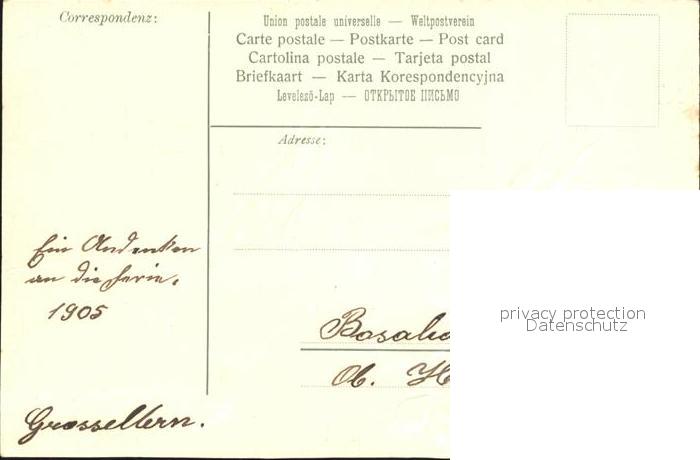 Correspondenz:
Union postale universelle — Weltpostverein
Carte postale — Postkarte — Post card
Cartolina postale — Tarjeta postal
Briefkaart — Karta Korespondencyjna
Levelező-Lap — ОТКРЫТОЕ ПИСЬМО
Adresse:
Ein Andenken
an die Ferie.
1905
Grosseltern.
privacy protection
Datenschutz
Ob. H